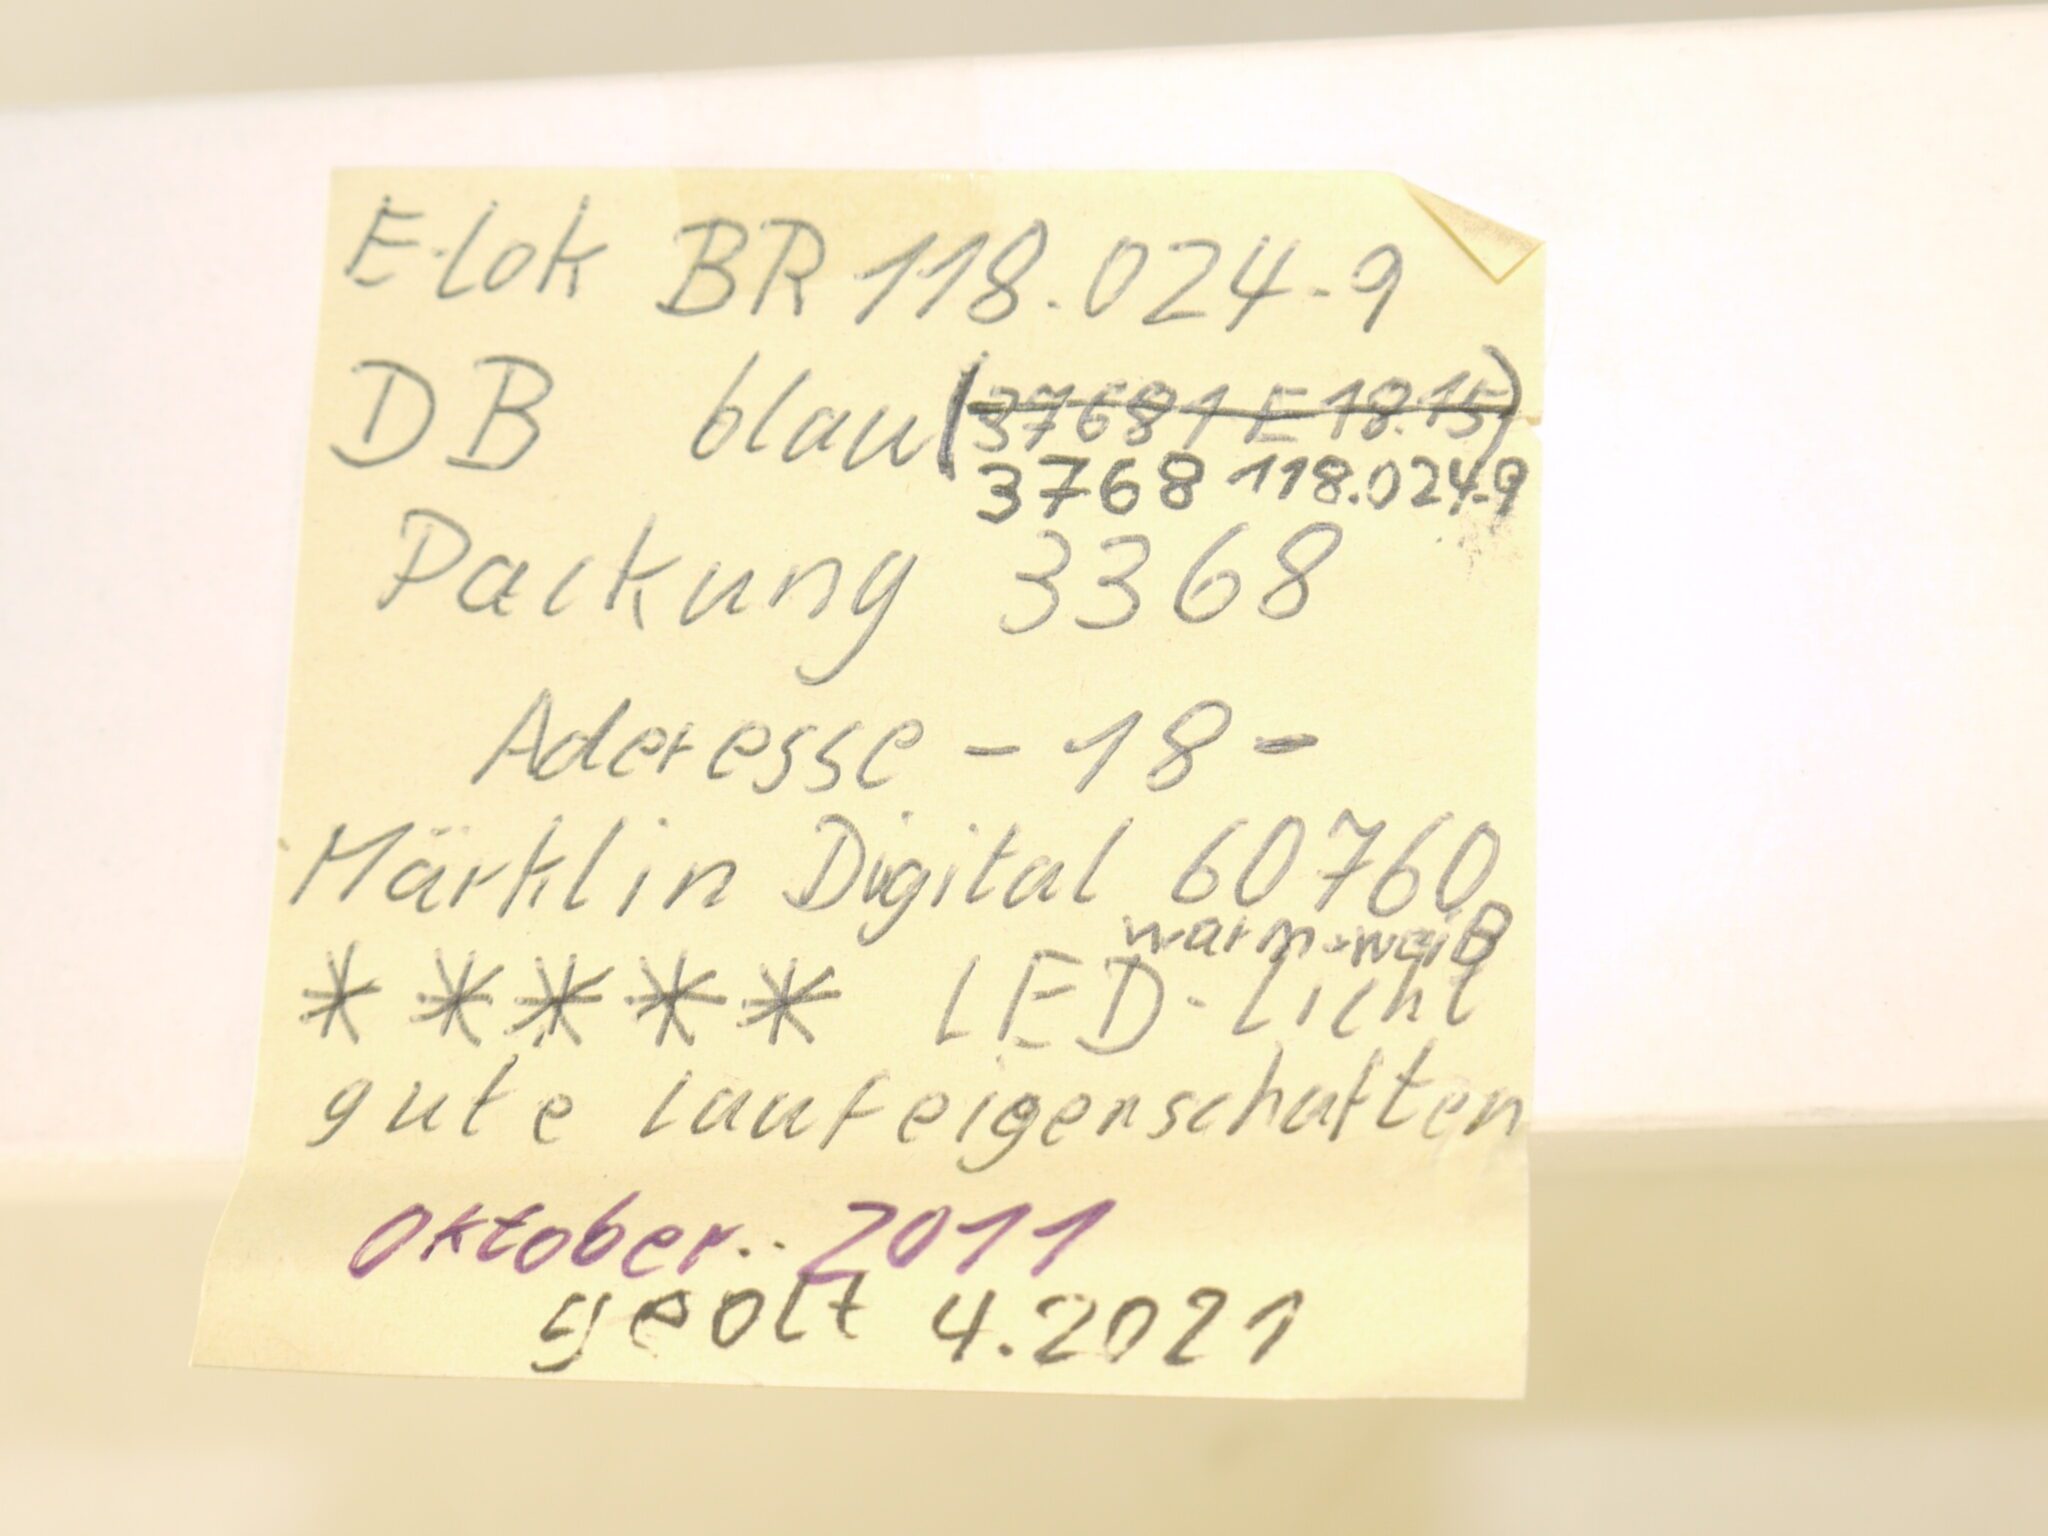 E-Lok BR 118.024-9
DB blau (37681 E 18.15)
3768 118.024-9
Packung 3368
Aderesse - 18 -
Märklin Digital 60760
warm-weiß
***** LED-Licht
gute Laufeigenschaften
Oktober.. 2011
geölt 4.2021